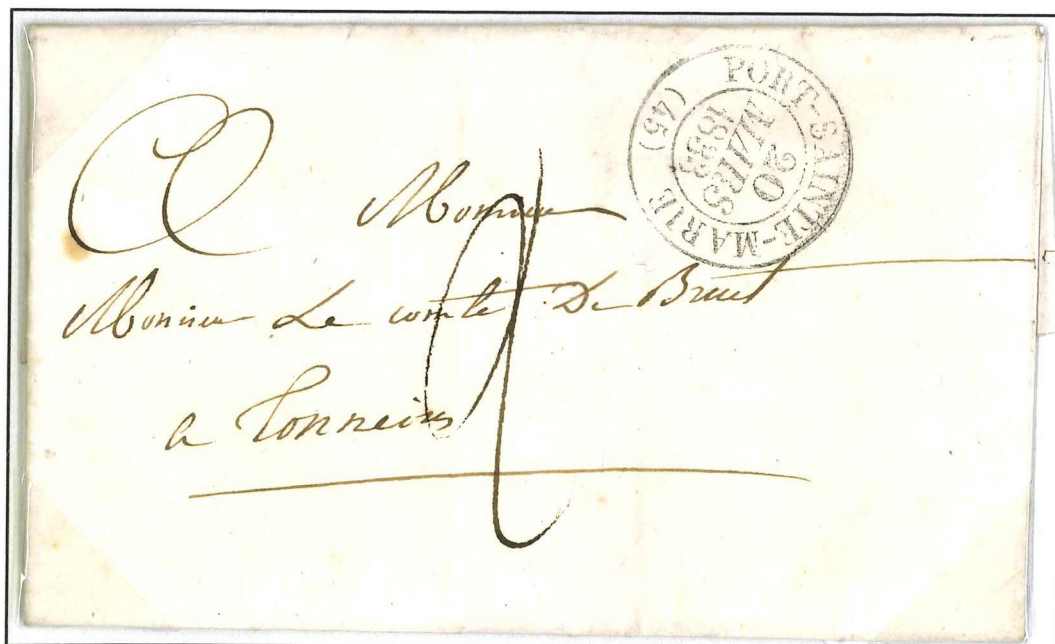 PORT-SAINTE-MARIE (45)
20
MARS
1853
2
Monsieur
Monsieur Le comte De
a Tonneins